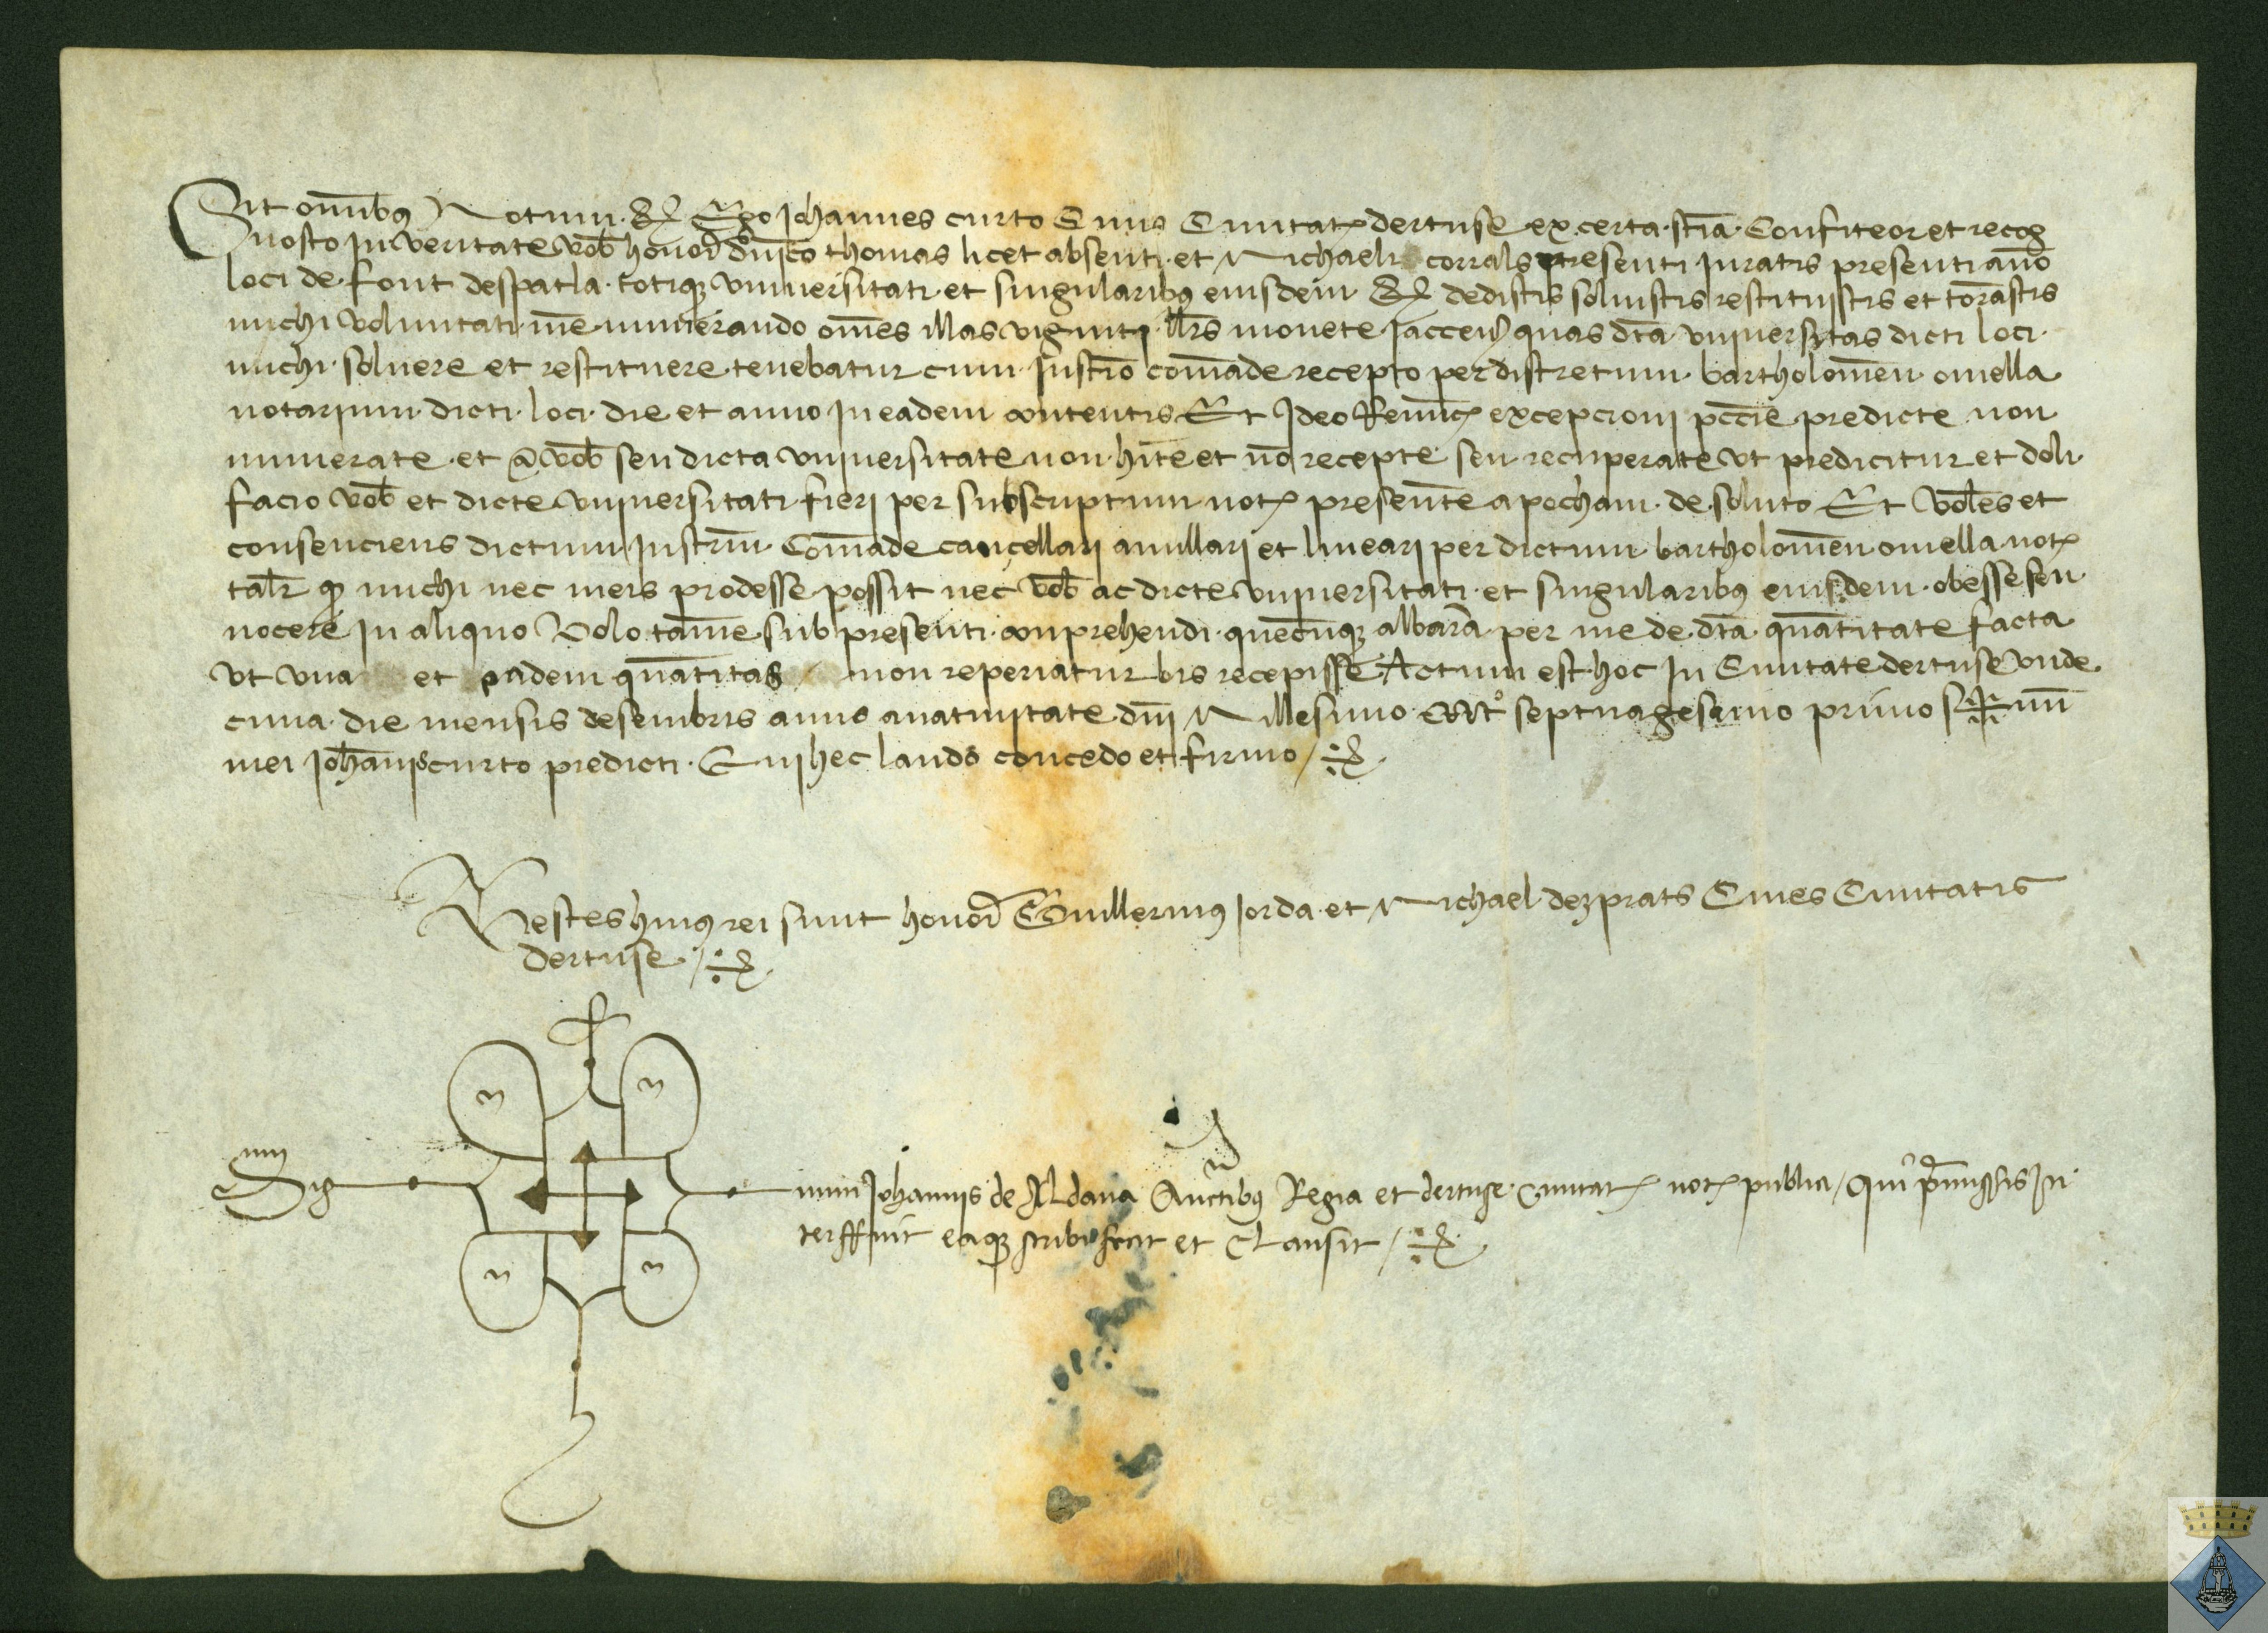 Sit om̄ibꝯ Notum. Qꝫ Ego Johannes curto Ciuis Ciuitatꝭ dertuse ex certa sciā. Confiteor et recog
nosco In veritate vob̄ honor̄ dn̄ico thomas licet absenti. et Michaeli corrals presenti Juratis presenti anno
loci de. font despatla. totiqꝫ vniuersitati. et singularibꝯ eiusdem Qꝫ dedistis soluistis restituistis et tornastis
michi voluntati. mee numerando om̄es illas viginti. llr̄s monete Jaccen̄ quas dt̄a vniuersitas dicti loci.
michi. soluere et restituere. tenebatur cum Instrō comāde recepto per discretum. bartholomeū. omella
notarium. dicti. loci. die et anno in eadem contentis Et Ideo Renūcꝭ excepcioni pccīe predicte non
numerate. et a vob̄ seu dicta vniuersitate non. hītē et nō recepte seu recuperate vt predicitur et doli.
facio vob̄ et dicte vniuersitati. fieri per subscriptum notꝭ presentē apocham. de. soluto Et vol̄es et
consenciens dictum Instrm̄. Comāde cancellari anullari et lineari per dictum. bartholomeū omella notꝭ
tal̄r ꝙ michi nec meis prodesse possit nec vob̄ ac dicte vniuersitati. et singularibꝯ eiusdem. obesse seu.
nocere In aliquo Volo. tamē sub presenti. conprehendi. quecūqꝫ albarā. per me de. dt̄a. quātitate facta
vt vna et eadem quātitas non reperiatur bis recepisse Actum est. hoc In Ciuitate dertuse vnde
cima. die mensis desembris anno anatiuitate. dn̄i Millesimo. CCCC septuagesimo primo Sig✠num̄
mei Joh̄anis curto predicti. Qui hec laudo concedo et firmo
Testes huiꝯ rei sunt honor̄ Guillermꝯ Jorda et Michael dezprats Ciues Ciuitatis
dertuse
Sig
num Johannis de Aldana Auctē̄ibꝯ Regia et dertuse. Ciuitatꝭ notꝭ publici / qui p̄missis In
terffuit eaqꝫ scribi fecit et Clausit